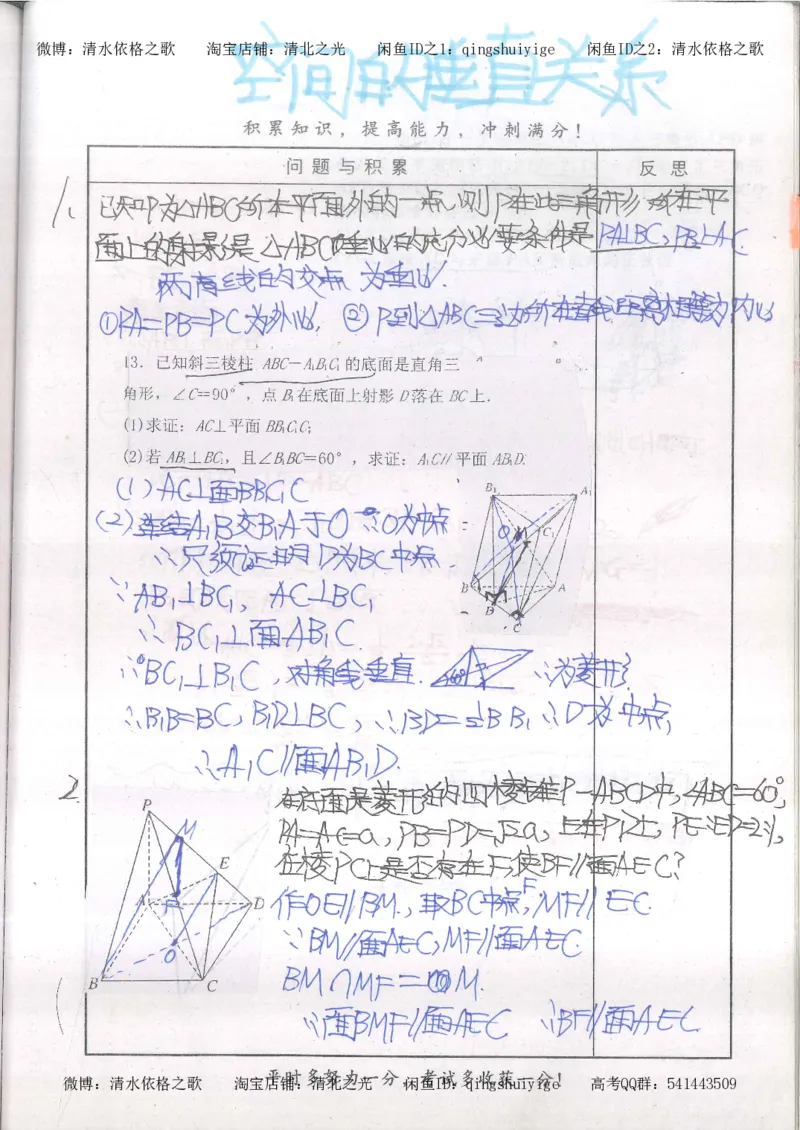 微博：清水依格之歌 淘宝店铺：清北之光 闲鱼ID之1：qingshuiyige 闲鱼ID之2：清水依格之歌
空间的垂直关系
积累知识，提高能力，冲刺满分！
问题与积累 反思
1、已知P为△ABC所在平面外的一点，则P在此三角形所在平
面上的射影是△ABC垂心的充分必要条件是PA⊥BC，PB⊥AC.
两高线的交点 为垂心.
①PA=PB=PC为外心，②P到△ABC三边所在直线距离相等为内心
13. 已知斜三棱柱 ABC－A₁B₁C₁的底面是直角三
角形，∠C=90°，点B₁在底面上射影D落在BC上.
(1)求证：AC⊥平面BB₁C₁C;
(2)若AB₁⊥BC₁，且∠B₁BC=60°，求证：A₁C∥平面AB₁D.
(1) AC⊥面BB₁C₁C
(2) 连结A₁B交B₁A于O ∵O为中点
∴只须证明D为BC中点.
∵AB₁⊥BC₁，AC⊥BC₁
∴BC₁⊥面AB₁C.
∴BC₁⊥B₁C，对角线垂直. 60° ∴为菱形
∴B₁B=BC，B₁D⊥BC，∴BD=½BB₁ ∴D为中点，
∴A₁C∥面AB₁D.
B₁ A₁
O C₁
B A
D
C
2. 在底面是菱形的四棱锥P－ABCD中，∠ABC=60°，
PA=AC=a，PB=PD=√2a，E在PD上，PE:ED=2:1，
在棱PC上是否存在F，使BF∥面AEC?
作OE∥BM，取BC中点F，MF∥EC.
∵BM∥面AEC，MF∥面AEC
BM∩MF=M.
∴面BMF∥面AEC ∴BF∥面AEC
P
M
E
A F D
O
B C
平时多努力一分，考试多收获一分！
微博：清水依格之歌 淘宝店铺：清北之光 闲鱼ID：qingshuiyige 高考QQ群：541443509